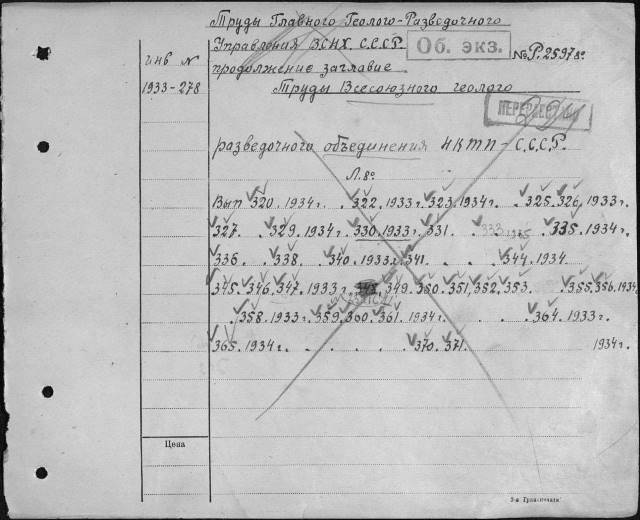 Труды Главного Геолого-Разведочного
Управления ВСНХ С.С.С.Р. Об. экз. № Р.2597 8°
инв N продолжение заглавие
1933-278 Труды Всесоюзного геолого
ПЕРЕРЕГИСТР
разведочного объединения НКТП-С.С.С.Р.
Л. 8°
Вып 320. 1934г. 322. 1933г. 323. 1934г. 325. 326. 1933г.
327. 329. 1934г. 330. 1933г. 331. 333 335. 1934г.
336. 338. 340. 1933г. 341. 344. 1934
345. 346. 347. 1933г. 348, 349. 350. 351, 352. 353. 355. 356. 1934
358. 1933г. 359. 360. 361. 1934г. 364. 1933г.
365. 1934г. 370. 371. 1934г.
Цена